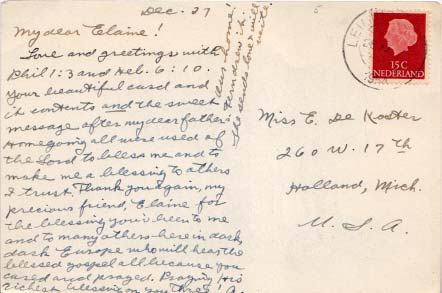 Dec. 27
My dear Elaine!
Love and greetings with
Phil 1:3 and Heb. 6:10.
Your beautiful card and
it contents and the sweet
message after my dear father's
Homegoing all were used of
the Lord to bless me and to
make me a blessing to others
I trust. Thank you again, my
precious friend, Elaine for
the blessing you've been to me
and to many others here in dark,
dark Europe who will hear the
blessed gospel all because you
cared and prayed. Praying His
richest blessing on you three!
home!
She sends love & will
write.
15C
NEDERLAND
Miss E. De Koster
260 W. 17th
Holland, Mich.
U. S. A.